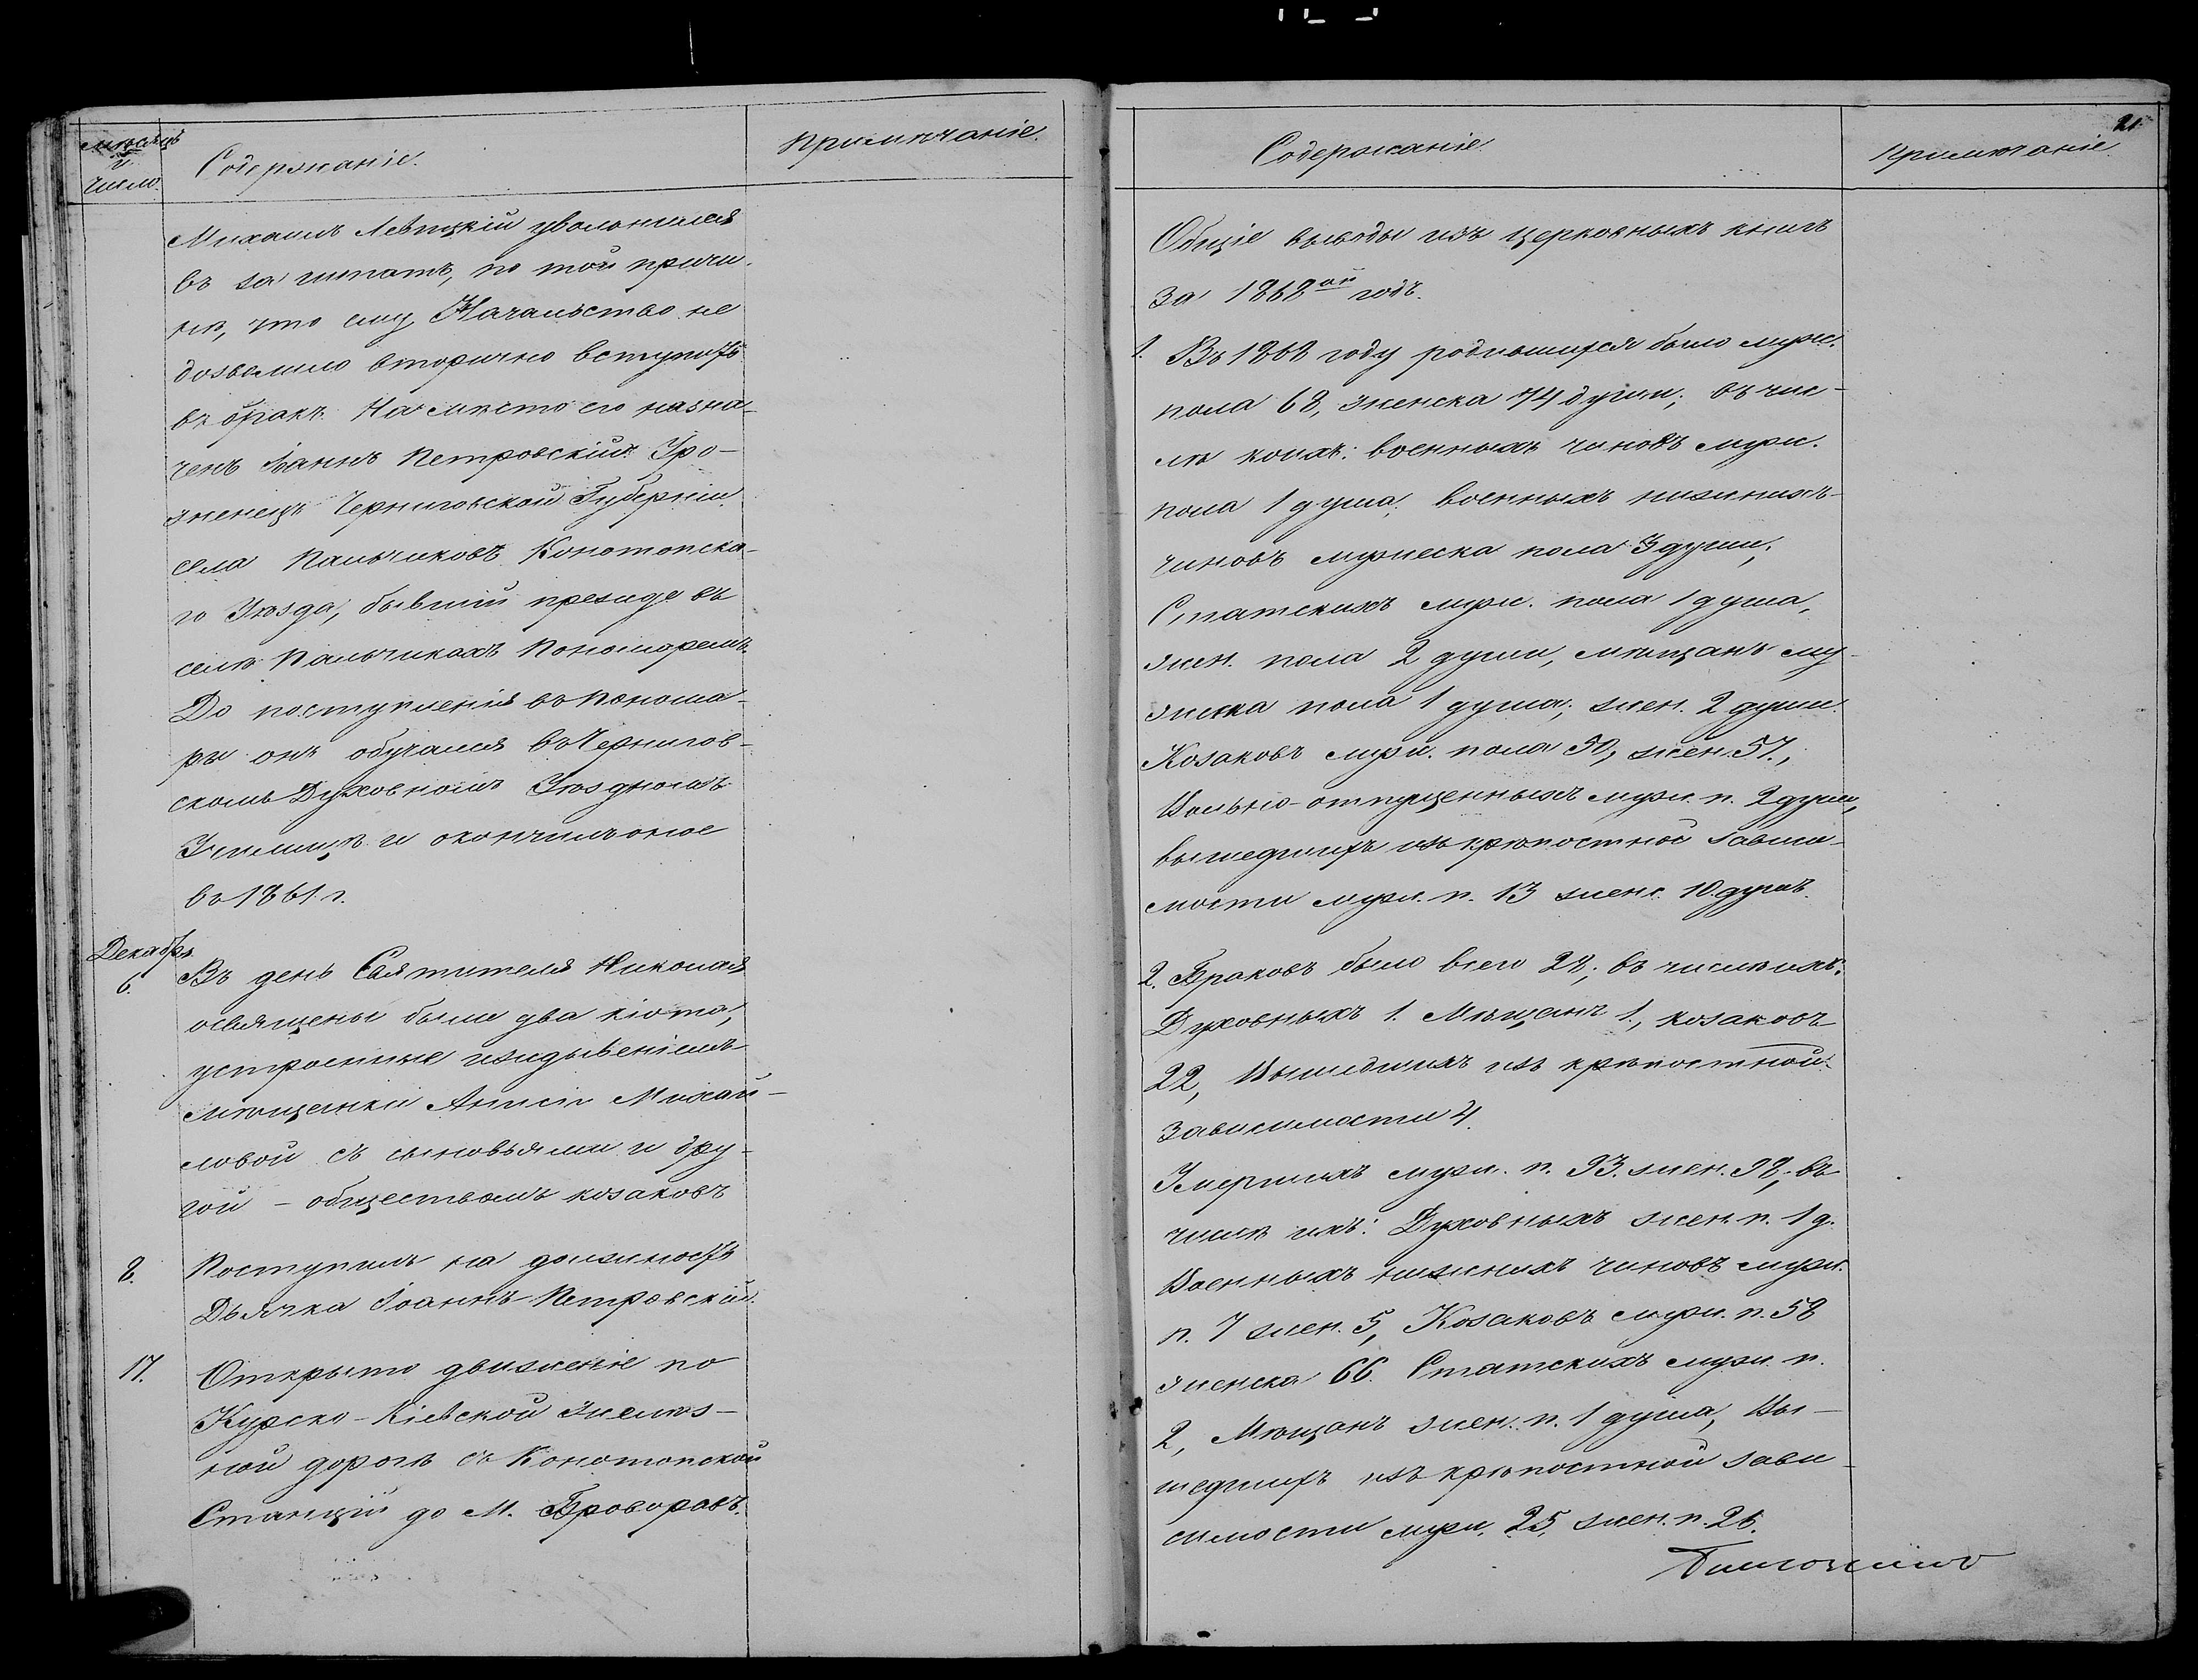 мѣсяцъ
и
число.
Содержаніе.
Примѣчаніе.
Михаилъ Левицкій уволонился
въ за штатъ, по той причи-
нѣ, что ему Начальство не
дозволило вторично вступить
въ бракъ. На мѣсто его назна-
ченъ Іоаннъ Петровскій. Уро-
женецъ Черниговской Губерніи
села Пальчиковъ Конотопска-
го Уѣзда, бывшій прежде въ
селѣ Пальчикахъ Пономаремъ.
До поступленія въ Понома-
ри онъ обучался въ Чернигов-
скомъ Духовномъ Уѣздномъ
Училищѣ и окончилъ оное
въ 1861 г.
Декабрь
6.
Въ день Святителя Николая
освящены были два кіота,
устроенные иждывеніемъ
мѣщанки Анисіи Михай-
ловой съ сыновьями и дру-
гой - обществомъ козаковъ
8.
Поступилъ на должность
Дьячка Іоаннъ Петровскій.
17.
Открыто движеніе по
Курско-Кіевской желѣз-
ной дорогѣ съ Конотопской
Станціи до М. Броворовъ.
21.
Содержаніе.
Примѣчаніе.
Общіе выводы изъ церковныхъ книгъ
за 1868ой годъ.
1. Въ 1868 году родившихся было муж.
пола 68, женска 74 души; въ чис-
лѣ коихъ: военныхъ чиновъ муж.
пола 1 душа, военныхъ нижнихъ
чиновъ мужеска пола 3 души,
Статскихъ муж. пола 1 душа,
жен. пола 2 души, мѣщанъ му-
жиска пола 1 душа, жен. 2 души.
Козаковъ муж. пола 50, жен. 57.,
Вольно-отпущенныхъ муж. п. 2 души,
вышедшихъ изъ крѣпостной зависи-
мости муж. п. 13 женс. 10. душъ.
2. Браковъ было всего 28, въ числѣ ихъ:
Духовныхъ 1. Мѣщанъ 1., козаковъ
22, Вышедшихъ изъ крѣпостной
зависимости 4.
Умершихъ муж. п. 93. жен. 98, въ
числѣ ихъ: Духовныхъ жен. п. 1 д.
Военныхъ нижнихъ чиновъ муж.
п. 7 жен. 5, Козаковъ муж. п. 58
женска 66. Статскихъ муж. п.
2, Мѣщанъ жен. п. 1 душа, Вы-
шедшихъ изъ крѣпостной зави-
симости муж. 25, жен. п. 26.